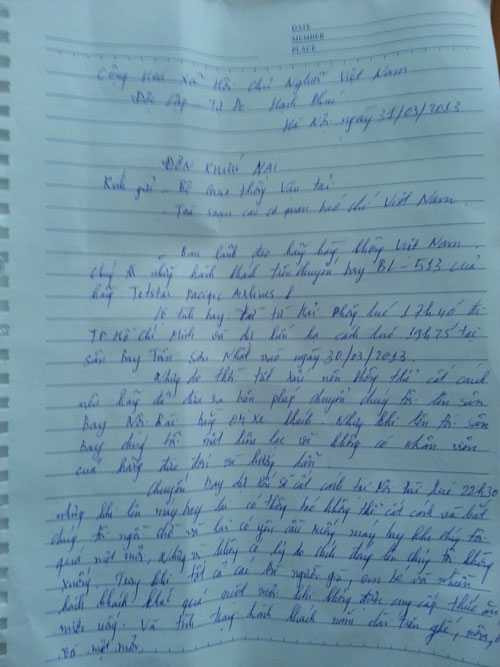 DATE
NUMBER
PLACE
Cộng Hòa Xã Hội Chủ Nghĩa Việt Nam
Độc Lập Tự Do Hạnh Phúc
Hà Nội ngày 31/03/2013
ĐƠN KHIẾU NẠI
Kính gửi - Bộ Giao thông Vận tải
- Toà soạn các cơ quan báo chí Việt Nam.
- Ban lãnh đạo hãng hàng không Việt Nam.
Chúng tôi những hành khách trên chuyến bay BL-513 của
hãng Jetstar Pacific Airlines
Lộ trình bay từ Hải Phòng lúc 17h40 đi
TP Hồ Chí Minh và dự kiến hạ cánh lúc 19h25 tại
sân bay Tân Sơn Nhất vào ngày 30/03/2013.
Nhưng do thời tiết xấu nên không thể cất cánh
nên hãng đã đưa ra biện pháp chuyển chúng tôi lên sân
bay Nội Bài bằng 04 xe khách. Nhưng khi lên tới sân
bay chúng tôi mất liên lạc và không có nhân viên
của hãng đón tới và hướng dẫn.
Chuyến bay dự kiến sẽ cất cánh tại Nội Bài lúc 22h30
nhưng khi lên máy bay lại có thông báo không thể cất cánh và bắt
chúng tôi ngồi chờ và lại có yêu cầu xuống máy bay khi chúng tôi
quá mệt mỏi, nhưng vì không có lý do chính đáng lên chúng tôi không
xuống. Trong khi tất cả các người già, em bé và nhiều
hành khách khác quá mệt mỏi khi không được cung cấp thức ăn
nước uống. Và tình trạng hành khách nằm dài trên ghế, nôn,
và mệt mỏi.